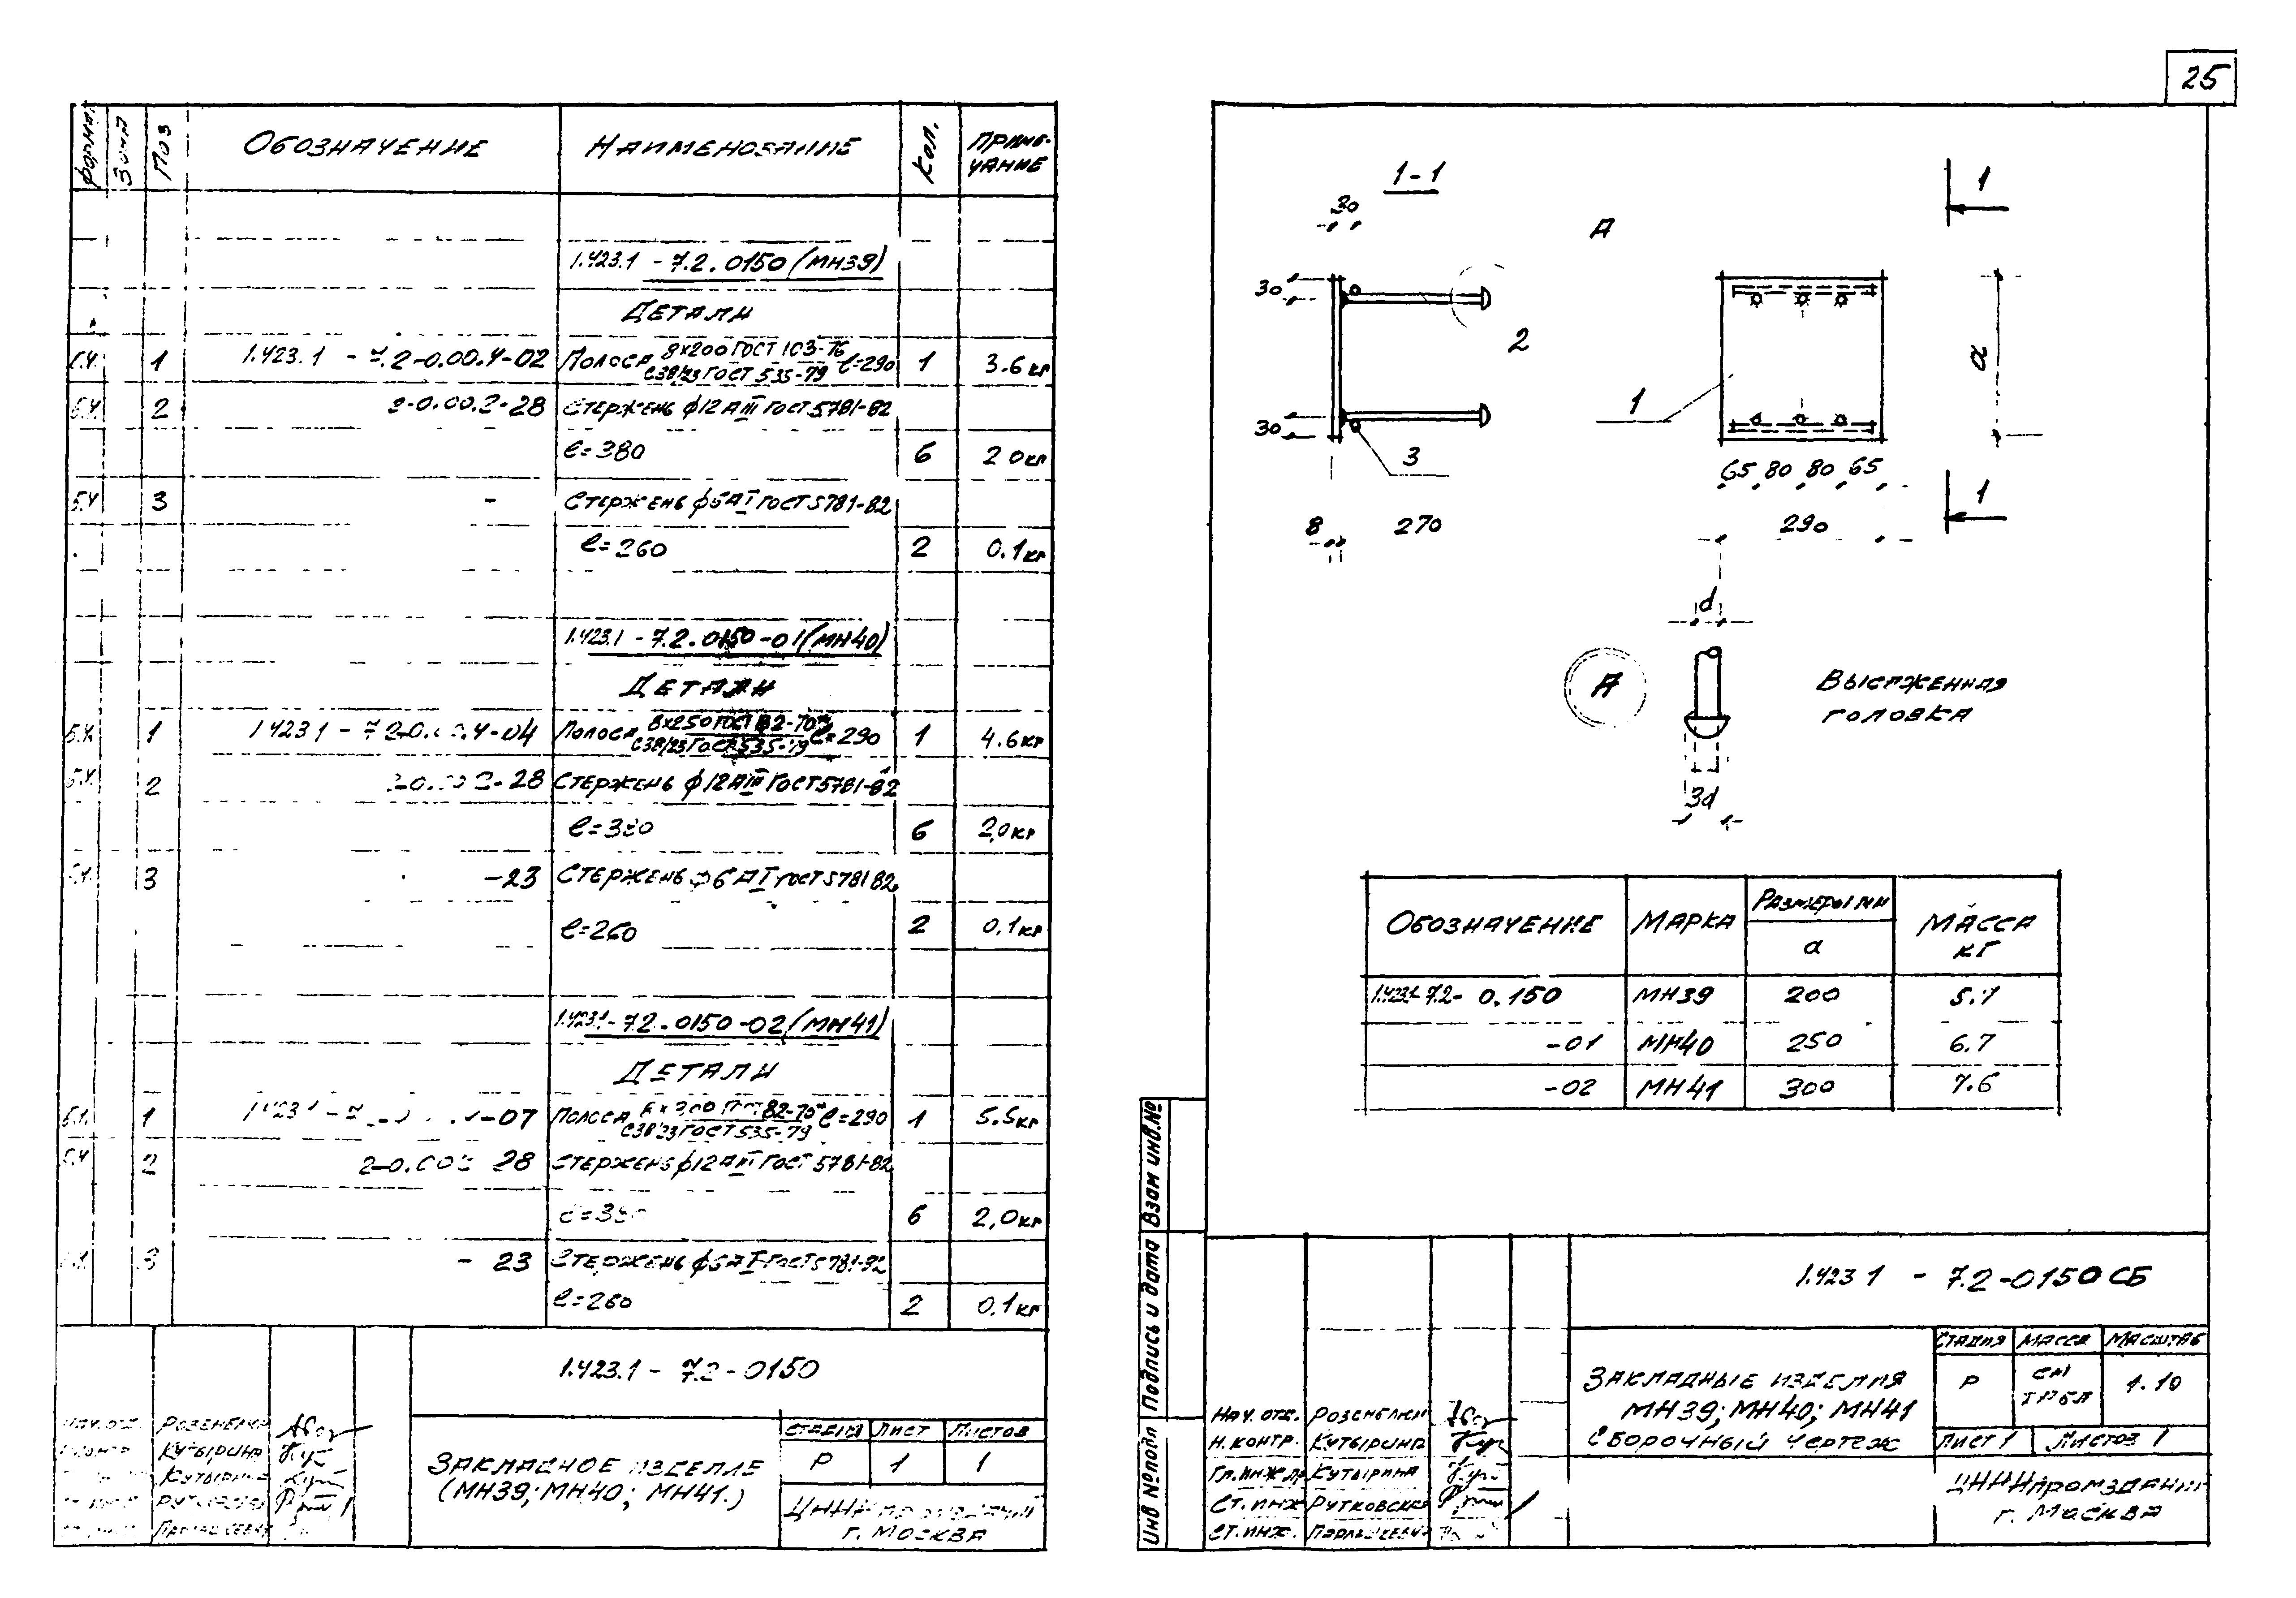 25
Формат Зона Поз Обозначение Наименование Кол. Приме-
чание
1.423.1 - 7.2.0150 (МН39)
Детали
Б.Ч. 1 1.423.1 - 7.2-0.00.4-02 Полоса 8×200 ГОСТ 103-76 ℓ=290 1 3.6 кг
С38/23 ГОСТ 535-79
Б.Ч. 2 2-0.00.2-28 Стержень ф12 АIII ГОСТ 5781-82
ℓ=380 6 2 0кг
Б.Ч 3 - Стержень ф6АI ГОСТ 5781-82
ℓ=260 2 0.1кг
1.423.1 - 7.2.0150-01 (МН40)
Детали
Б.Ч. 1 1.423 1 - 7 2-0. .4-04 Полоса 8×250 ГОСТ 82-70* ℓ=290 1 4.6 кг
С38/23 ГОСТ 535-79
Б.Ч. 2 2-28 Стержень ф12АIII ГОСТ 5781-82
ℓ=380 6 2,0 кг
3 -23 Стержень ф6 АI ГОСТ 5781 82
ℓ=260 2 0,1 кг
1.423.1 - 7.2.0150-02 (МН41)
Детали
1 1.423 1 - 7 -07 Полоса 8×300 ГОСТ 82-70* ℓ=290 1 5.5 кг
С38/23 ГОСТ 535-79
Б.Ч 2 2-0.00 28 Стержень ф12 АIII ГОСТ 5781-82
ℓ=380 6 2,0кг
3 - 23 Стержень ф6АI ГОСТ 5781-82
ℓ=260 2 0.1кг
1.423.1 - 7.2-0150
Закладное изделие
(МН39; МН40; МН41.)
Стадия Лист Листов
Р 1 1
г. Москва
Розенблюм
Кутырина
Кутырина
1-1
30
А
1
30
2
а
1
30
3
65 80 80 65
1
8 270
290
d
А
Высаженная
головка
3d
Обозначение Марка Размеры мм Масса
кг
а
1.423.1-7.2- 0.150 МН39 200 5.7
-01 МН40 250 6.7
-02 МН41 300 7.6
Инв № подл Подпись и дата Взам инв.№
1.423 1 - 7.2-0150 СБ
Закладные изделия
МН39; МН40; МН41
Сборочный чертеж
Стадия Масса Масштаб
Р См
табл 1.10
Лист 1 Листов 1
ЦНИИпромзданий
г. Москва
Нач. отд. Розенблюм
Н. контр. Кутырина
Гл.инж.пр Кутырина
Ст. инж Рутковская
Ст. инж.